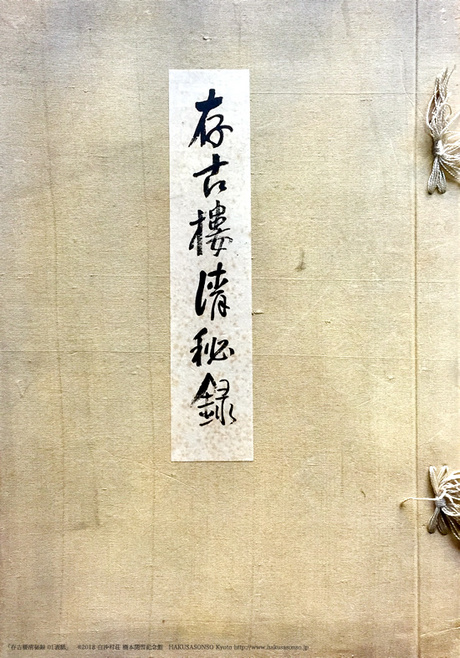 存古樓清秘録
『存古樓清秘録 01選鈔』 ©2018 白沙村荘 橋本関雪記念館 HAKUSASONSO Kyoto http://www.hakusasonso.jp